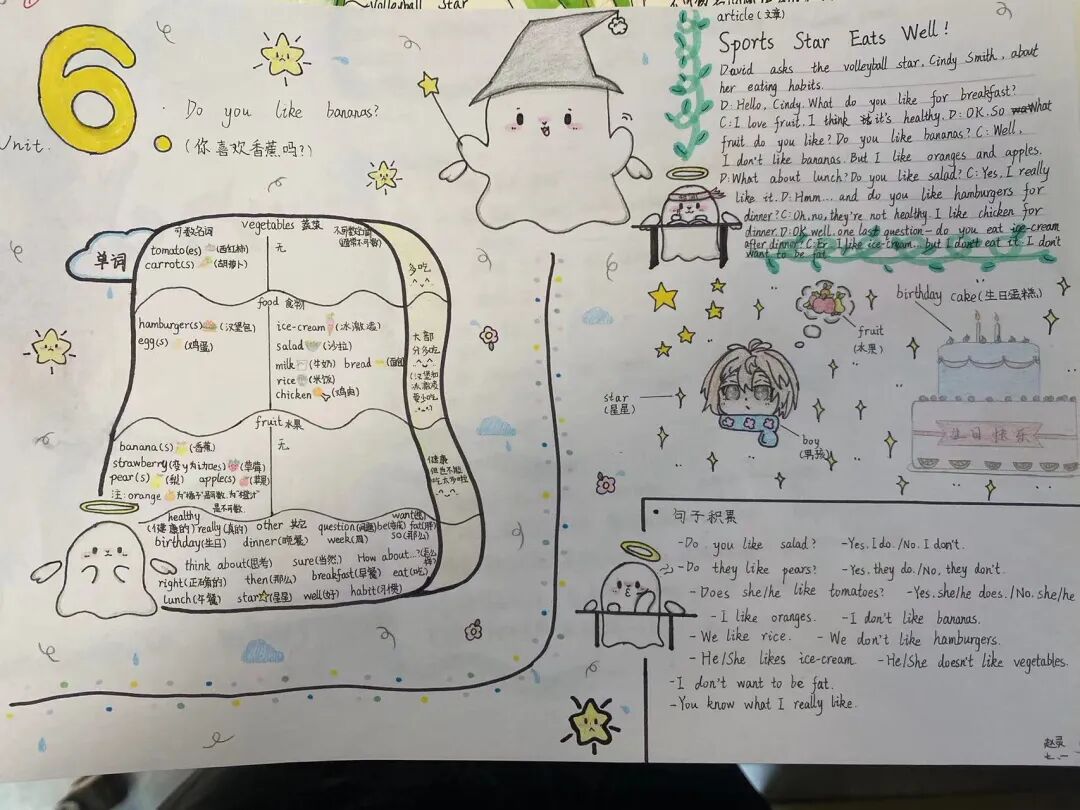 Volleyball Star
Unit. 6.
Do you like bananas?
(你喜欢香蕉吗?)
单词
vegetables 蔬菜
可数名词
不可数名词
(通常不可数)
tomato(es) (西红柿)
carrot(s) (胡萝卜)
无
多吃
food 食物
hamburger(s) (汉堡包)
egg(s) (鸡蛋)
ice-cream (冰激凌)
salad (沙拉)
milk (牛奶) bread (面包)
rice (米饭)
chicken (鸡肉)
大部
分多吃
(汉堡和
冰激凌
要少吃
fruit 水果
banana(s) (香蕉)
strawberry(变y为i加es) (草莓)
pear(s) (梨) apple(s) (苹果)
注: orange 为"橘子"是可数,为"橙汁"
是不可数.
无
健康
但也不能
吃太多啦
healthy
(健康的) really(真的) other 其它 question(问题) be(变成) fat(胖)
want(想)
birthday(生日) dinner(晚餐) week(周) so(那么)
think about(思考) sure(当然) How about...?(怎么样)
right(正确的) then(那么) breakfast(早餐) eat(吃)
lunch(午餐) star(星星) well(好) habit(习惯)
article(文章)
Sports Star Eats Well!
David asks the volleyball star, Cindy Smith, about
her eating habits.
D: Hello, Cindy. What do you like for breakfast?
C: I love fruit. I think it's healthy. D: OK. So What
fruit do you like? Do you like bananas? C: Well,
I don't like bananas. But I like oranges and apples.
D: What about lunch? Do you like salad? C: Yes, I really
like it. D: Hmm... and do you like hamburgers for
dinner? C: Oh, no, they're not healthy. I like chicken for
dinner. D: OK well, one last question— do you eat ice-cream
after dinner? C: Er I like ice-cream, but I don't eat it. I don't
want to be fat.
birthday cake(生日蛋糕)
fruit
(水果)
star
(星星)
boy
(男孩)
生日快乐
句子积累
-Do you like salad? -Yes, I do./No. I don't.
-Do they like pears? -Yes. they do./No, they don't.
-Does she/he like tomatoes? -Yes. she/he does./No. she/he
-I like oranges. -I don't like bananas.
-We like rice. -We don't like hamburgers.
-He/She likes ice-cream. -He/She doesn't like vegetables.
-I don't want to be fat.
-You know what I really like.